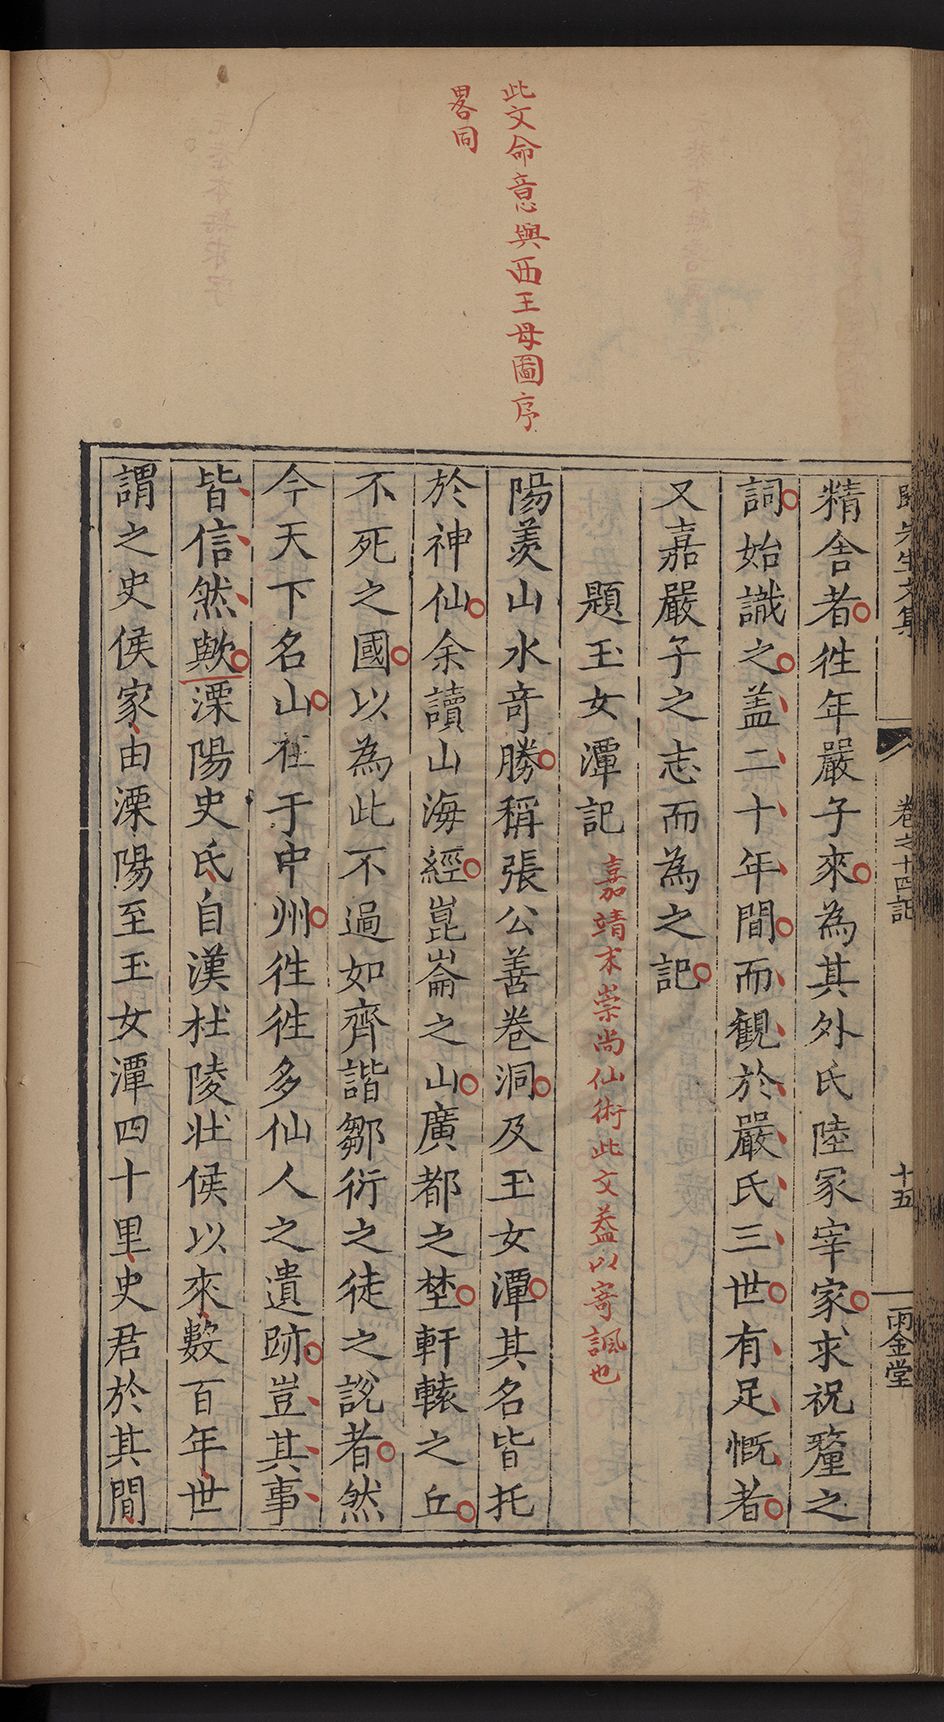 此文命意與西王母圖序
畧同
歸先生文集
卷之十四記
十五
雨金堂
精舍者徃年嚴子來為其外氏陸冢宰家求祝釐之
詞始識之盖二十年間而観於嚴氏三世有足慨者
又嘉嚴子之志而為之記
題玉女潭記
嘉靖末崇尚仙術此文葢以寄諷也
陽羨山水竒勝稱張公善卷洞及玉女潭其名皆托
於神仙余讀山海經崑崙之山廣都之埜軒轅之丘
不死之國以為此不過如齊諧鄒衍之徒之說者然
今天下名山在于中州徃徃多仙人之遺跡豈其事
皆信然歟溧陽史氏自漢杜陵壯侯以來數百年世
謂之史侯家由溧陽至玉女潭四十里史君於其間